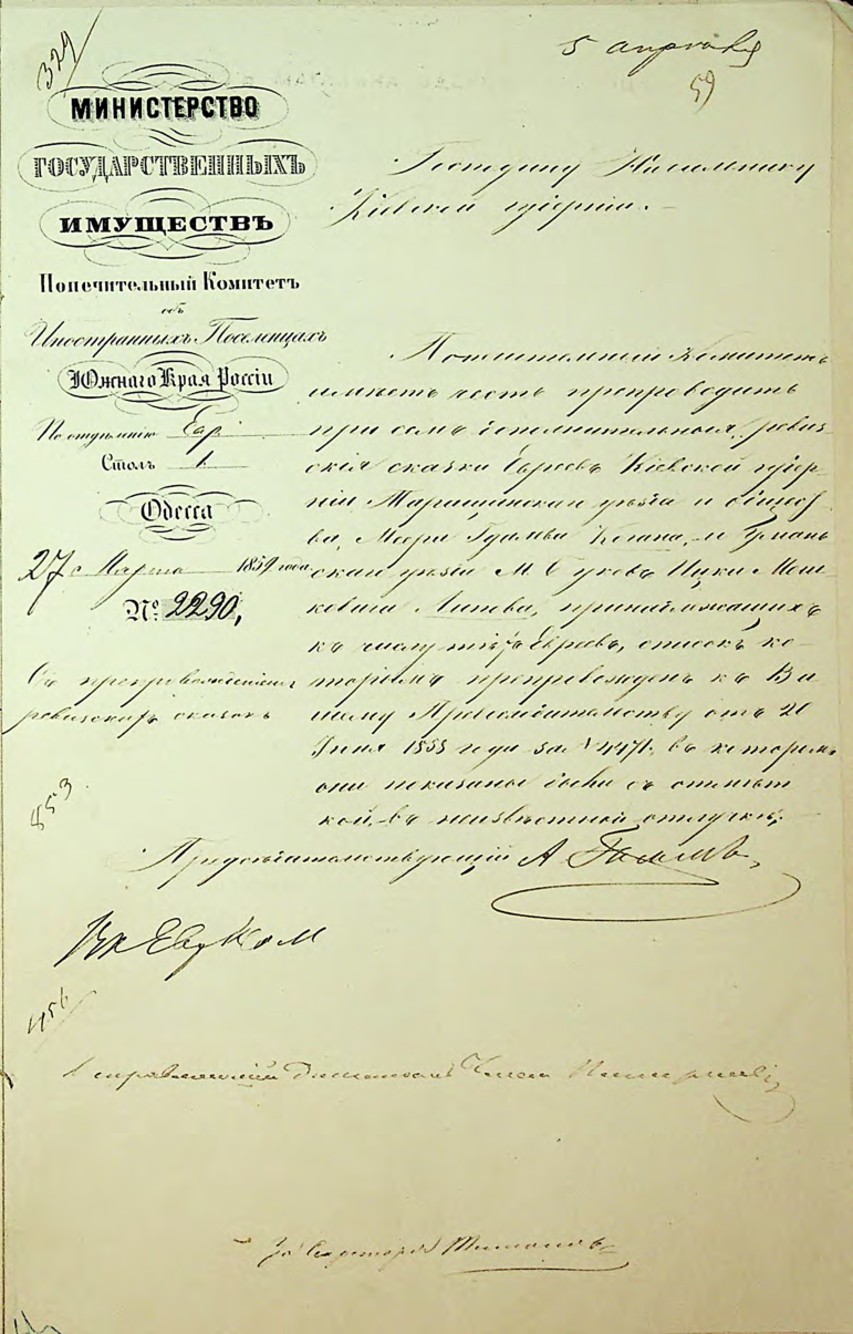 329
5 апреля
59
МИНИСТЕРСТВО
ГОСУДАРСТВЕННЫХЪ
ИМУЩЕСТВЪ
Попечительный Комитетъ
объ
Иностранныхъ Поселенцахъ
Южнаго Края Россіи
По отдѣленію Евр.
Столъ 1.
Одесса
27 с Марта 1859 года.
№ 2290,
Съ препровожденіемъ
ревизскихъ сказокъ
853
Господину Начальнику
Кіевской губерніи.
Попечительный Комитетъ
имѣетъ честь препроводить
при семъ дополнительныя ревиз
скія сказки Евреевъ Кіевской губер
ніи Таращанскаго уѣзда и общест
ва, Когана, и Уманс
каго уѣзда М. Ицки Мош
ковича Литвы, принадлежащихъ
къ числу тѣхъ Евреевъ, списокъ ко
торымъ препровожденъ къ Ва
шему Превосходительству отъ 20
Іюня 1858 года за № 4471, въ которомъ
они показаны были съ отмѣт
кой, въ неизвѣстной отлучкѣ.
Предсѣдательствующій А Гаммъ
456
Управляющій Членъ
За Секретаря